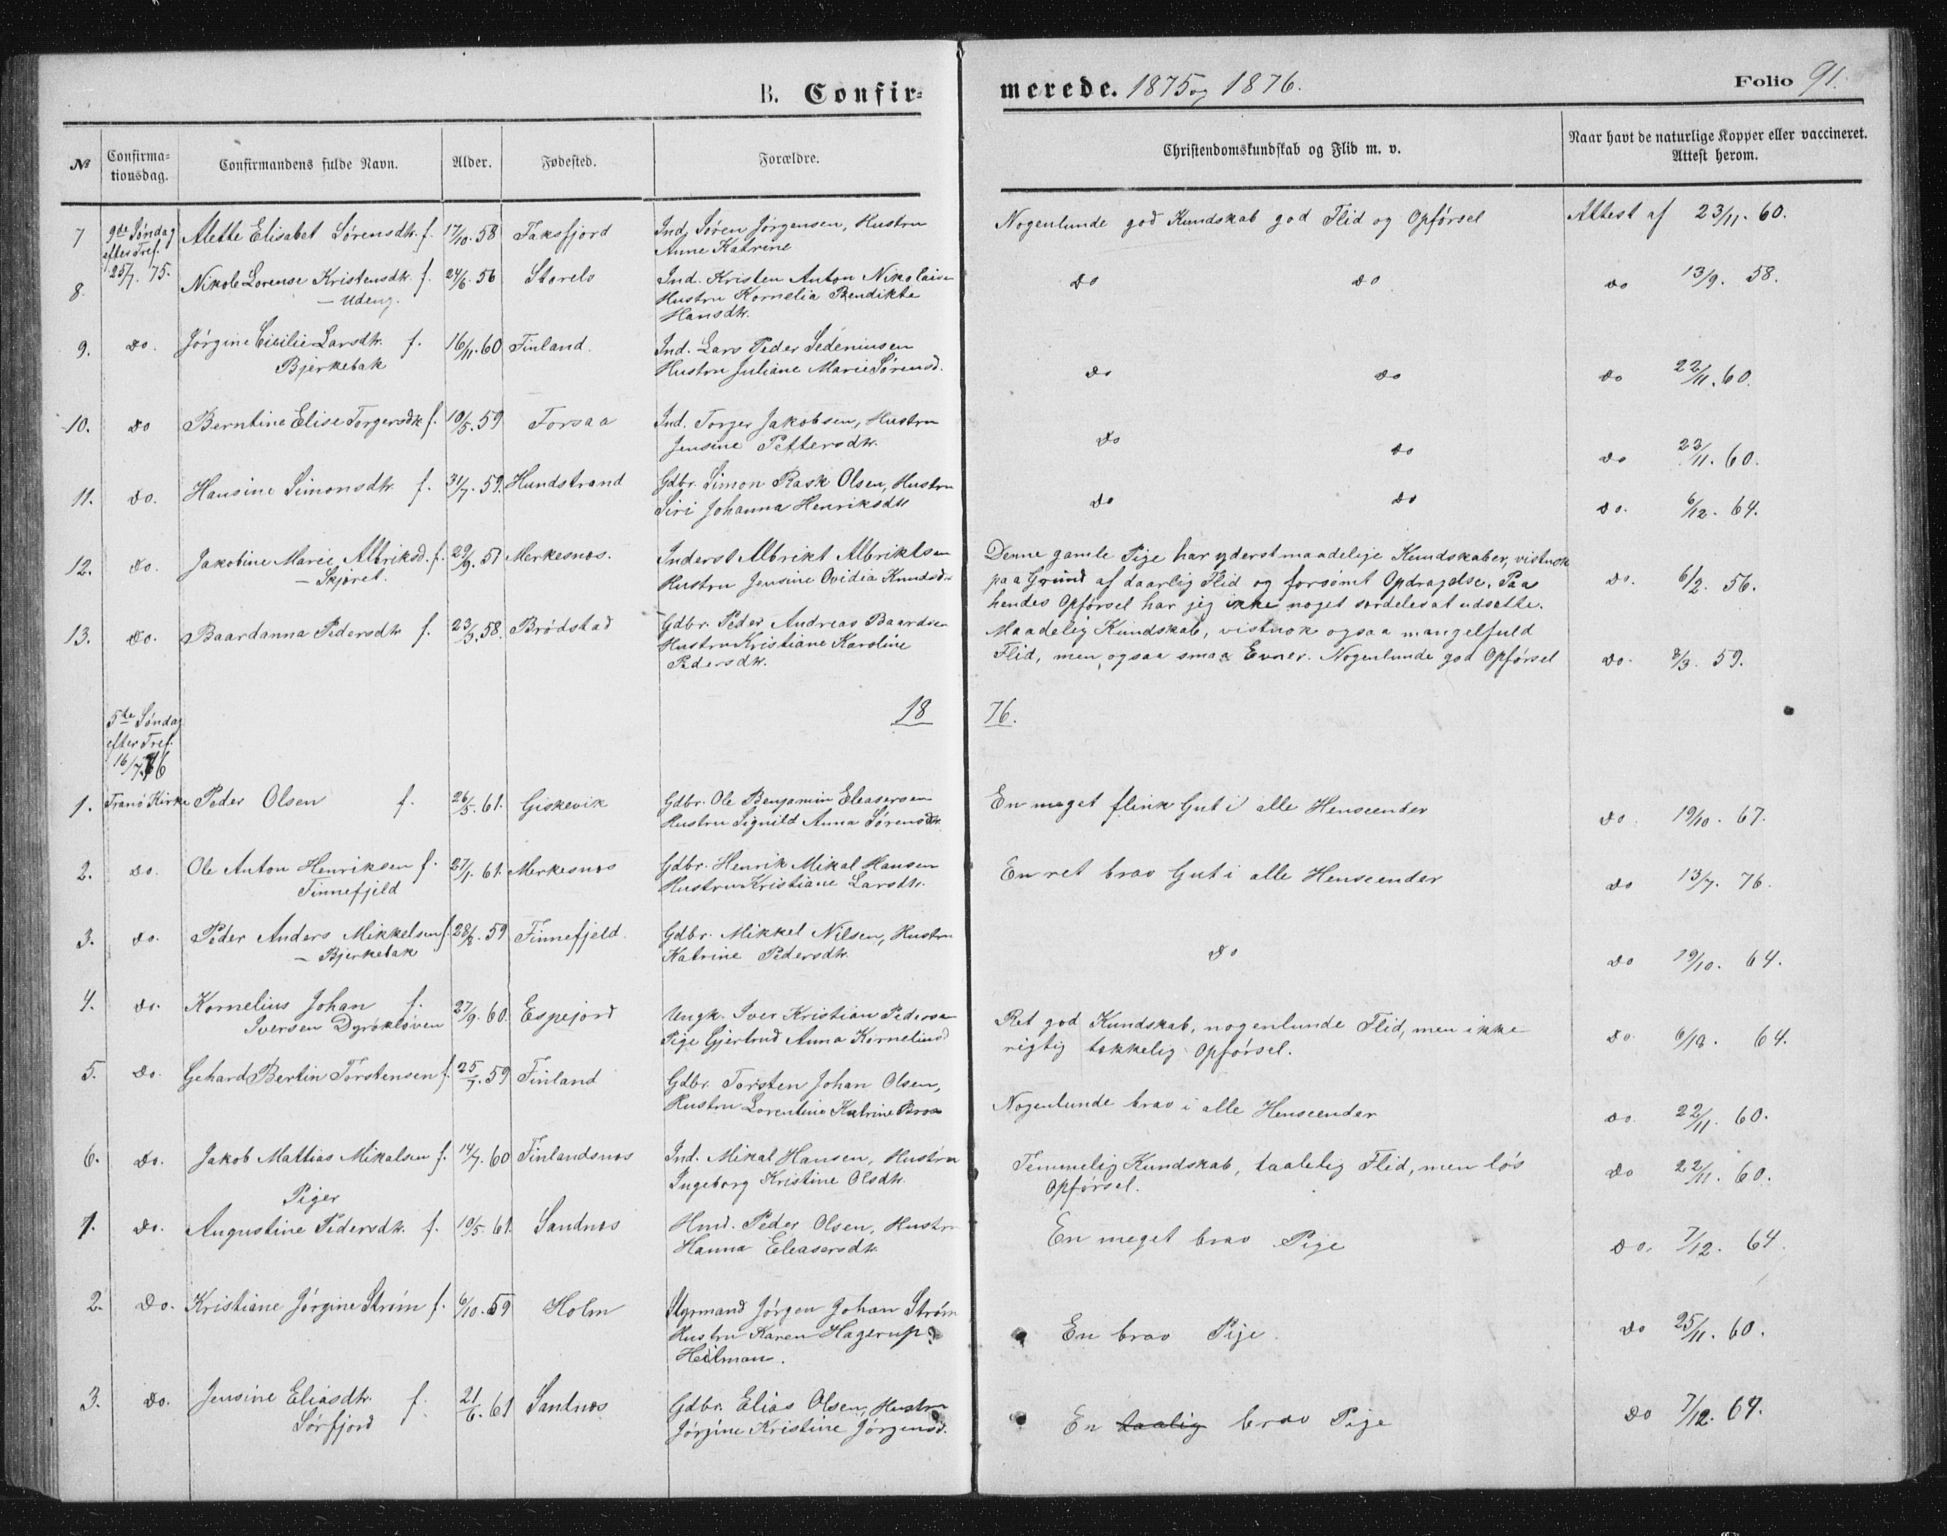 B. Confir-
merede. 1875 og 1876.
Folio 91.
№
Confirma-
tionsdag.
Confirmandens fulde Navn.
Alder.
Fødested.
Forældre.
Christendomskundskab og Flid m. v.
Naar havt de naturlige Kopper eller vaccineret.
Attest herom.
7 9de Søndag Alette Elisabet Sørensdtr. f. 17/10. 58 Faksfjord Ind. Søren Jørgensen, Hustru Nogenlunde god Kundskab god Flid og Opførsel Attest af 23/11. 60.
efter Tref. Anne Katrine
8. 25/7. 75. Nikole Lorense Kristensdtr. f. 24/6. 56 Storelv Ind. Kristen Anton Nikolaisen do do do 13/9. 58.
– Udeng. Hustru Kornelia Bendikte
Hansdtr.
9. do. Jørgine Cicilie Larsdtr. f. 16/11. 60 Finland. Ind. Lars Peder Sedeniusen
Bjerkebak Hustru Juliane Marie Sørensd. do do do 22/11. 60.
10. do Berntine Elise Torgersdtr f. 10/5. 59 Forsaa Ind. Torger Jakobsen, Hustru
Jensine Pettersdtr. do do do 23/11. 60.
11. do. Hansine Simonsdtr. f. 31/7. 59. Hundstrand Gdbr. Simon Rask Olsen, Hustru
Siri Johanna Henriksdtr do do do. 6/12. 64.
12. do. Jakobine Marie Albriksd. f. 29/9. 51 Merkesnes. Inderst Albrikt Albriktsen Denne gamle Pige har yderst maadelige Kundskaber, vistnok
– Skjøret. Hustru Jensine Ovidia Knudsdtr paa Grund af daarlig Flid og forsømt Opdragelse. Paa do. 6/2. 56.
hendes Opførsel har jeg ikke noget særdeles at udsætte.
13. do. Baardanna Pedersdtr f. 23/3. 58. Brødstad Gdbr. Peder Andreas Baardsen Maadelig Kundskab, vistnok ogsaa mangelfuld
Hustru Kristiane Karoline Flid, men ogsaa smaa Evner. Nogenlunde god Opførsel do. 8/3. 59.
Pedersdtr.
18 76.
5te Søndag
efter Tref.
16/7. 76
1. Tranø Kirke Peder Olsen f. 26/5. 61. Giskevik Gdbr. Ole Benjamin Eleasersen En meget flink Gut i alle Henseender do. 19/10. 67.
Hustru Signild Anna Sørensdtr.
2. do. Ole Anton Henriksen f. 27/1. 61. Merkesnes Gdbr. Henrik Mikal Hansen En ret brav Gut i alle Henseender do 13/7. 76.
Finnefjeld Hustru Kristiane Larsdtr.
3. do. Peder Anders Mikkelsen f. 28/8. 59 Finnefjeld. Gdbr. Mikkel Nilsen, Hustru
– Bjerkebak Katrine Pedersdtr. do do 19/10. 64.
4. do. Kornelius Johan f. 27/9. 60. Espejord Ungk. Iver Kristian Pedersen Ret god Kundskab, nogenlunde Flid, men ikke do. 6/12. 64.
Iversen Dyrøkløven Pige Gjertrud Anna Kornelius d rigtig tækkelig Opførsel.
5. do. Gehard Bertin Torstensen f. 25/7. 59 Finland Gdbr. Torsten Johan Olsen,
Hustru Lorentine Katrine Nogenlunde brav i alle Henseender do. 22/11. 60.
6. do. Jakob Mattias Mikalsen f. 14/7. 60 Finlandsnes Ind. Mikal Hansen, Hustru Temmelig Kundskab, taalelig Flid, men løs do 22/11. 60.
Ingeborg Kristine Olsdtr. Opførsel.
Piger
1. do. Augustine Pedersdtr. f. 10/5. 61. Sandnes Hmd. Peder Olsen, Hustru En meget brav Pige do. 7/12. 64.
Hanna Eleasersdtr.
2. do. Kristiane Jørgine Strøm f. 6/10. 59 Holm Styrmand Jørgen Johan Strøm
Hustru Karen Hagerup En brav Pige. do 25/11. 60.
Heilman.
3. do. Jensine Eliasdtr. f. 21/6. 61 Sandnes Gdbr. Elias Olsen, Hustru
Sørfjord Jørgine Kristine Jørgensd. En taalig brav Pige do 7/12. 64.